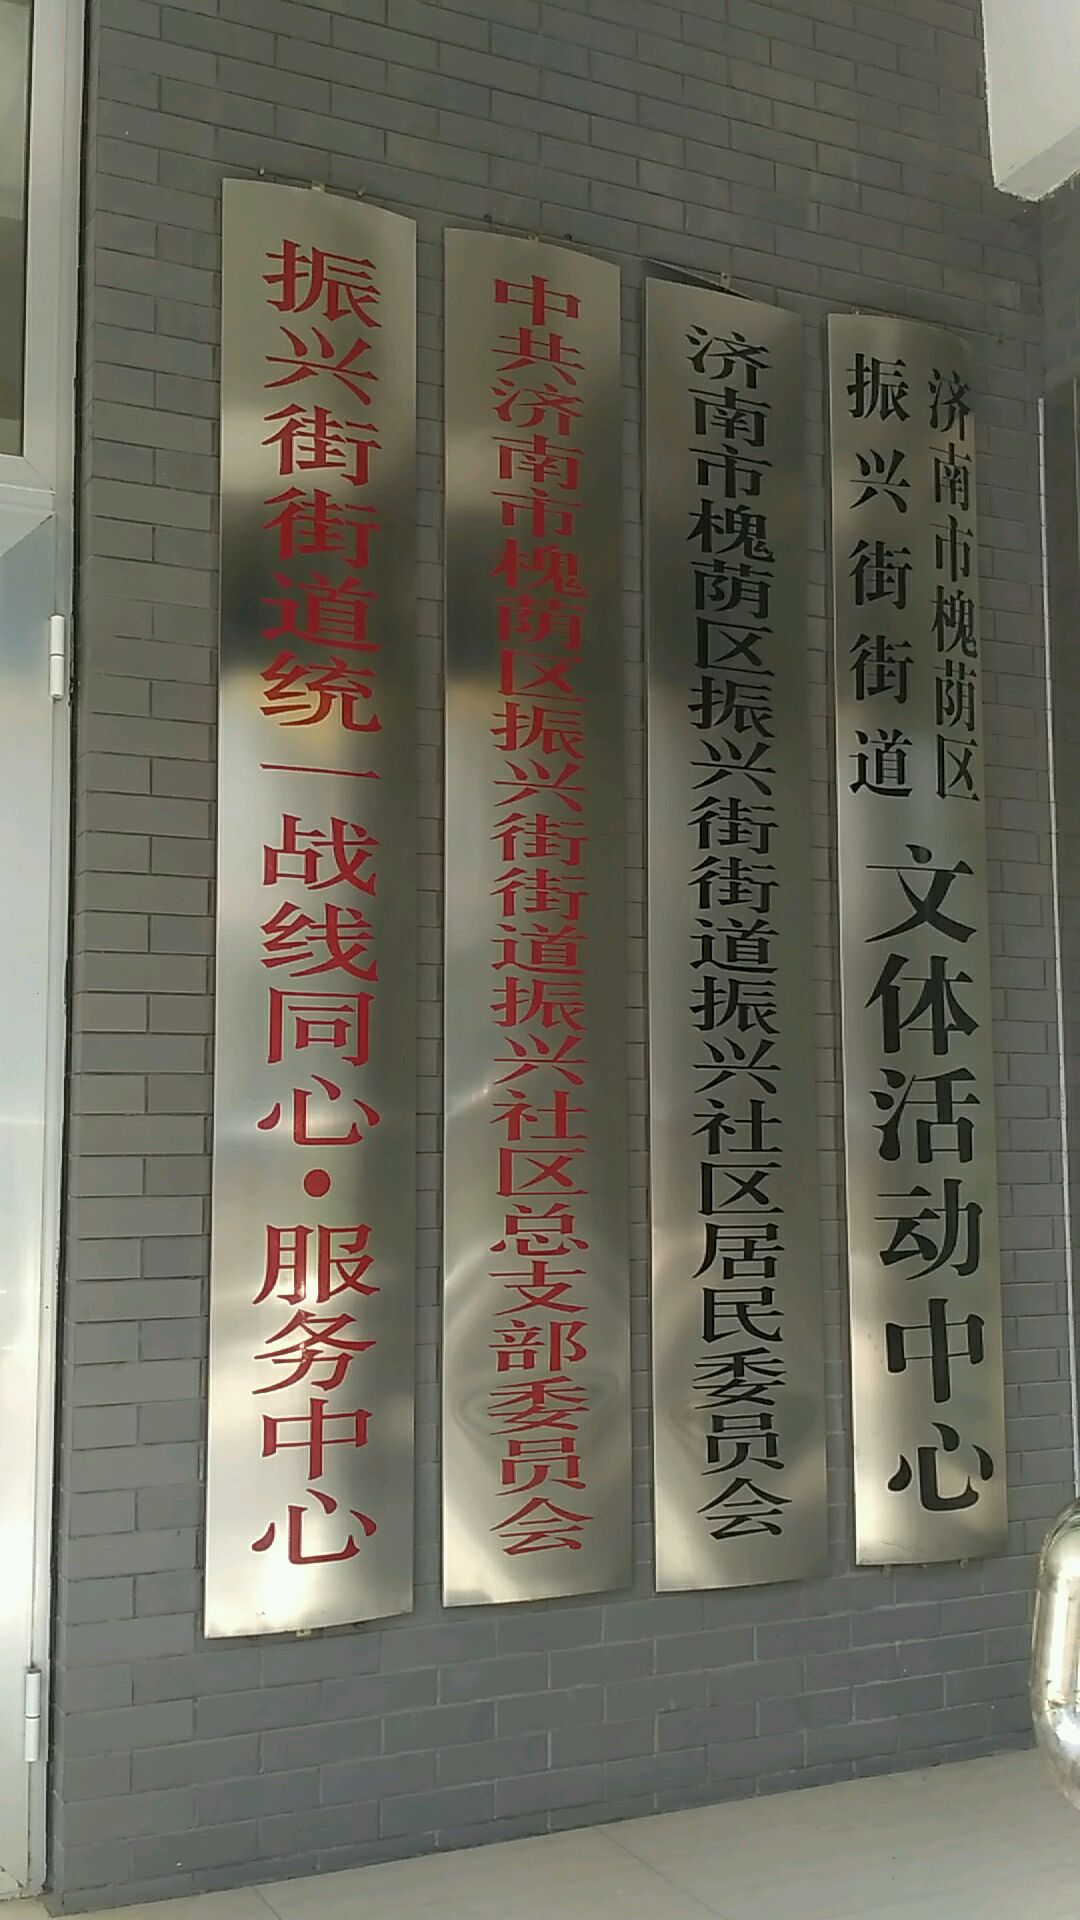 振兴街街道统一战线同心·服务中心
中共济南市槐荫区振兴街街道振兴社区总支部委员会
济南市槐荫区振兴街街道振兴社区居民委员会
济南市槐荫区
振兴街街道
文体活动中心